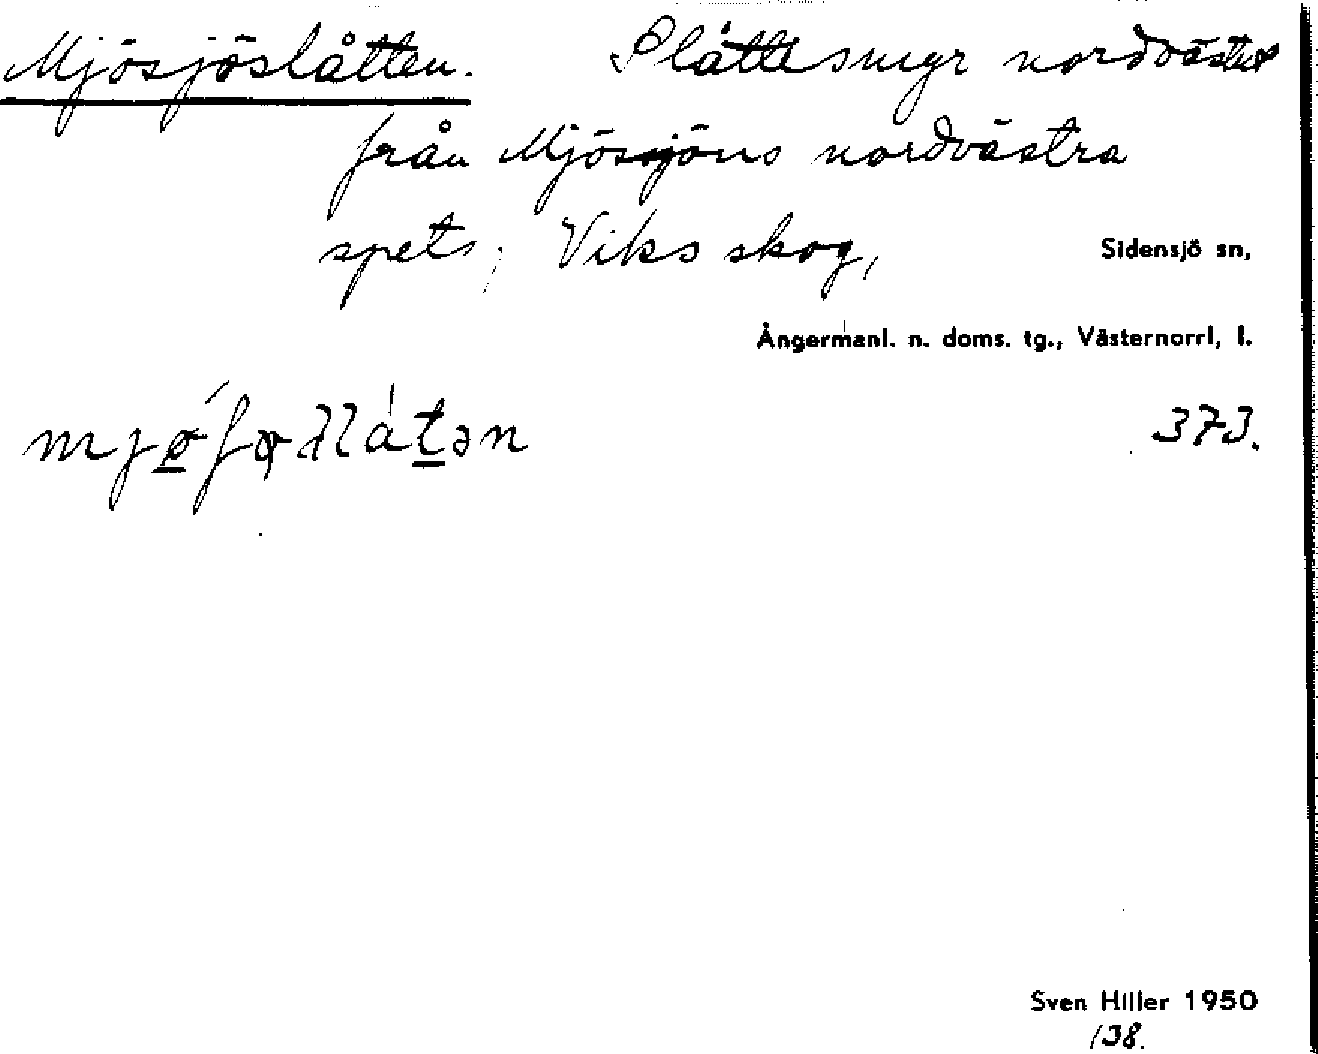 Mjösjöslåtten. Slåttesmyr nordväster
från Mjösjöns nordvästra
spets; Viks skog, Sidensjö sn,
Ångermanl. n. doms. tg., Västernorrl, l.
373.
Sven Hiller 1950
138.